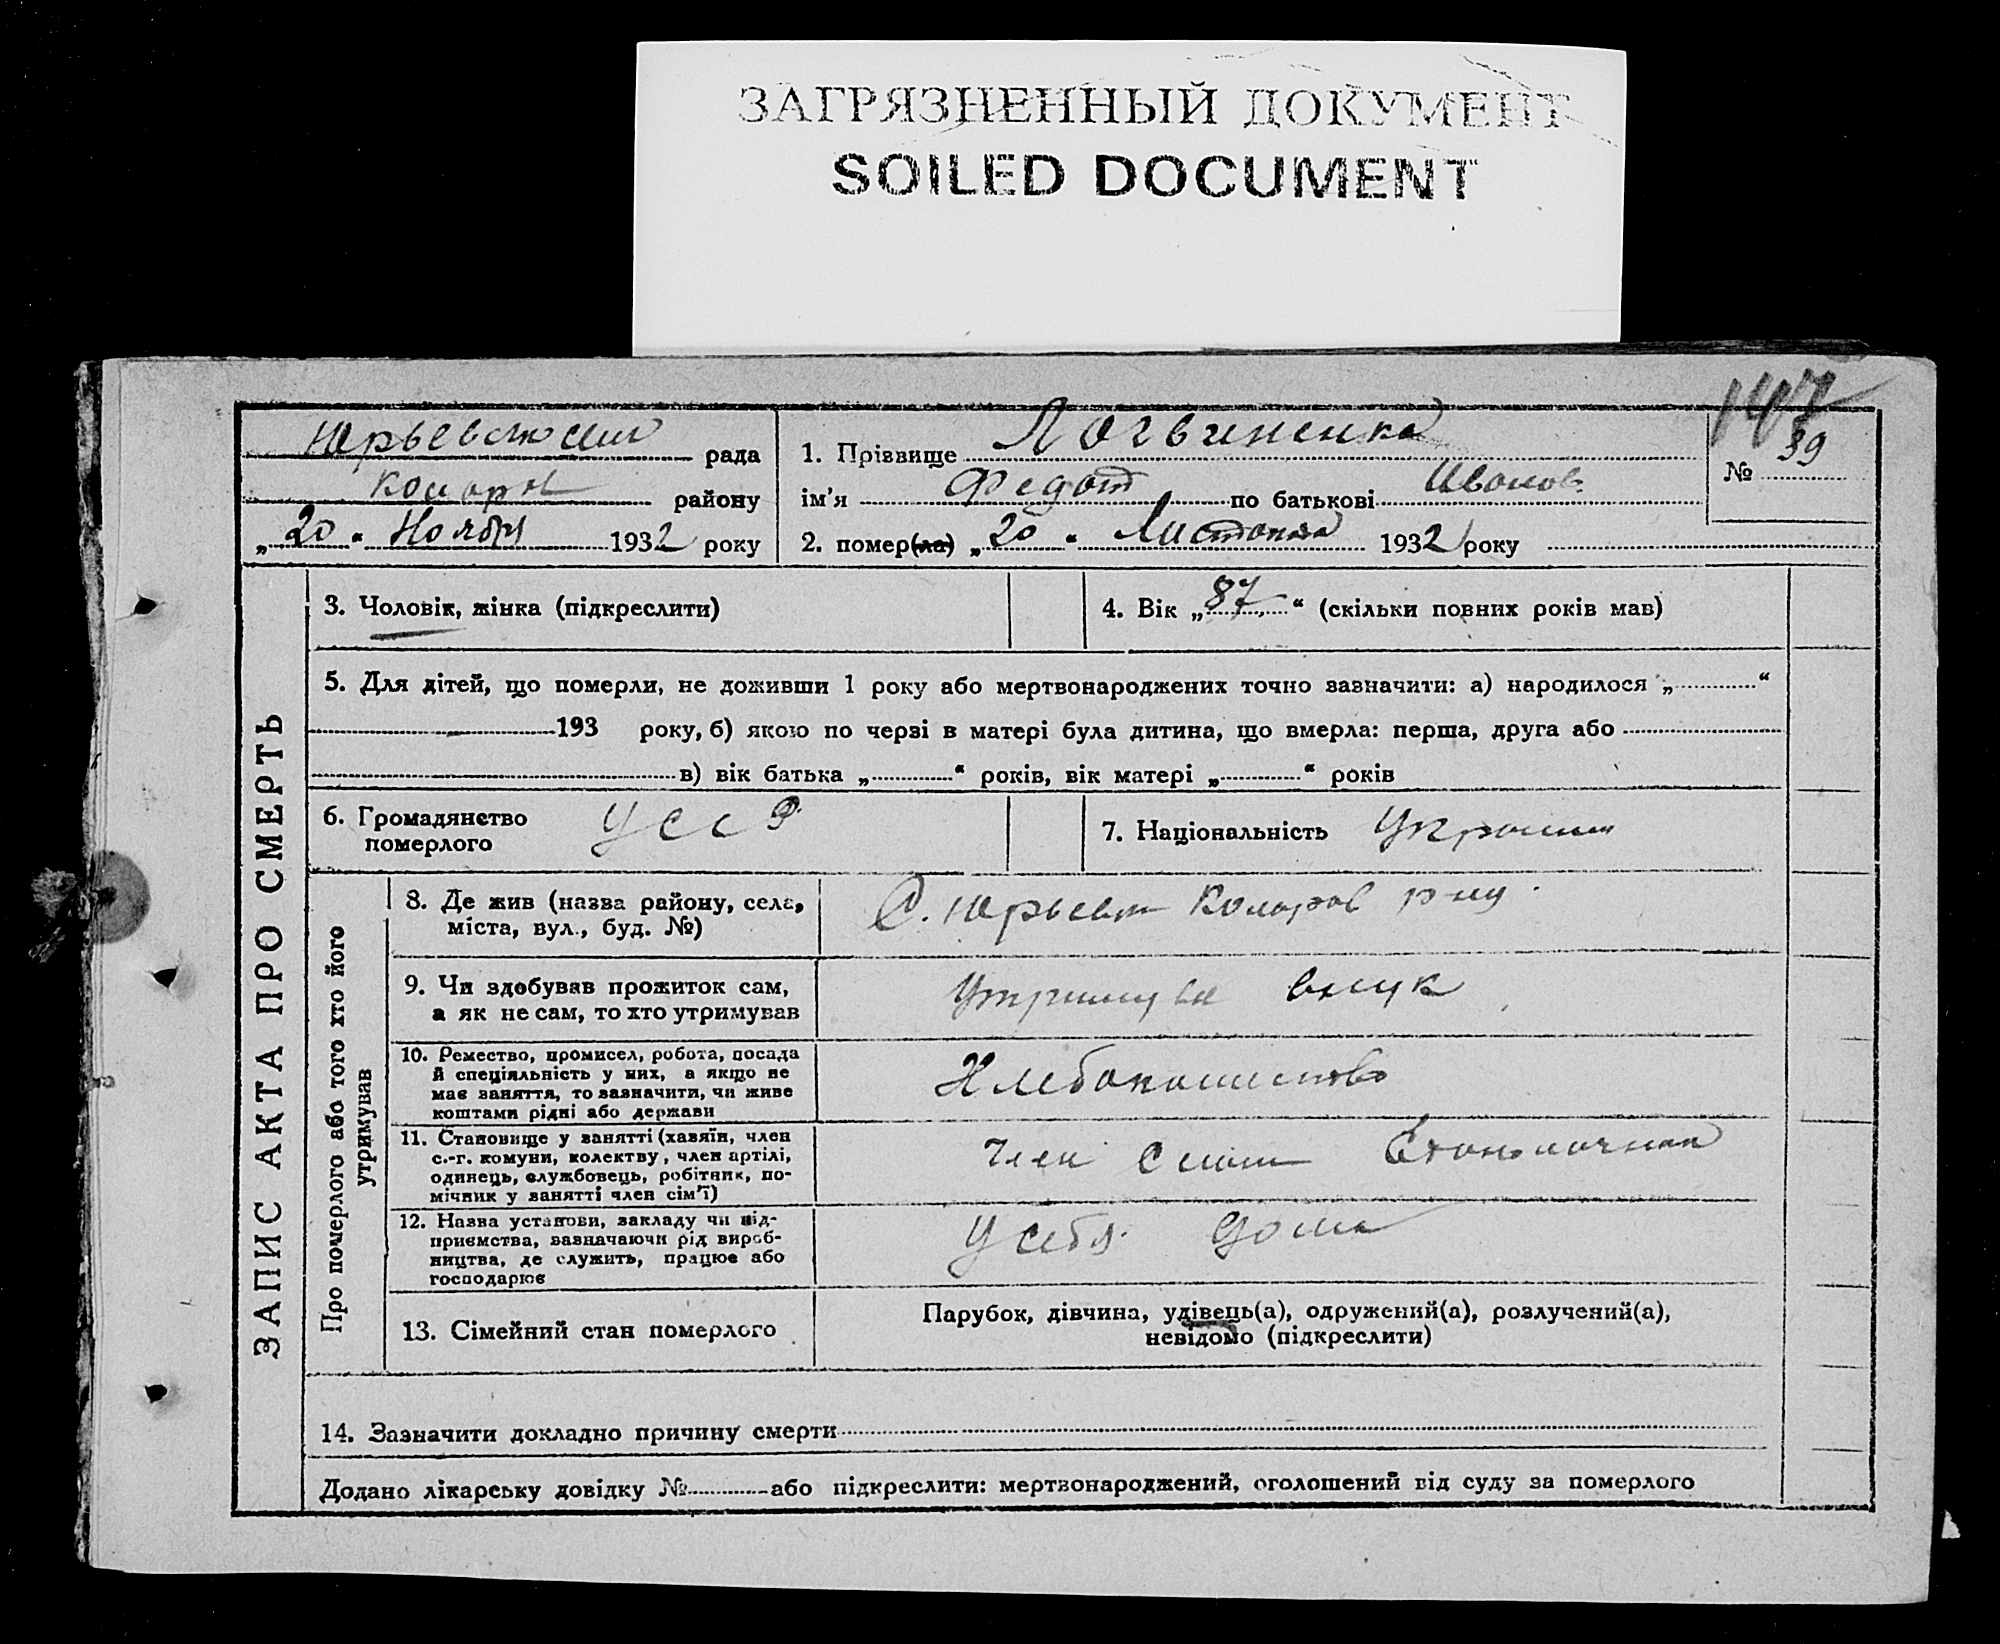 ЗАГРЯЗНЕННЫЙ ДОКУМЕНТ
SOILED DOCUMENT
147
рада
района району
„20“ Ноября 1932 року
1. Прізвище Логвиненко
ім'я Федот по батькові Иванов.
№ 39
2. помер(ла) „20“ Листопада 1932 року
ЗАПИС АКТА ПРО СМЕРТЬ
3. Чоловік, жінка (підкреслити)
4. Вік „87“ (скільки повних років мав)
5. Для дітей, що померли, не доживши 1 року або мертвонароджених точно зазначити: а) народилося „ “
193 року, б) якою по черзі в матері була дитина, що вмерла: перша, друга або
в) вік батька „ “ років, вік матері „ “ років
6. Громадянство померлого УССР
7. Національність
Про померлого або того хто його утримував
8. Де жив (назва району, села,
міста, вул., буд. №)
С.
9. Чи здобував прожиток сам,
а як не сам, то хто утримував
внук
10. Ремество, промисел, робота, посада
й спеціяльність у них, а якщо не
має заняття, то зазначити, чи живе
коштами рідні або держави
11. Становище у занятті (хазяїн, член
с.-г. комуни, колектву, член артілі,
одинець, службовець, робітник, по-
мічник у занятті член сім'ї)
Член
12. Назва установи, закладу чи під-
приємства, зазначаючи рід вироб-
ництва, де служить, працює або
господарює
У себя дома
13. Сімейний стан померлого
Парубок, дівчина, удівець(а), одружений(а), розлучений(а),
невідомо (підкреслити)
14. Зазначити докладно причину смерти
Додано лікарську довідку № або підкреслити: мертвонароджений, оголошений від суду за померлого